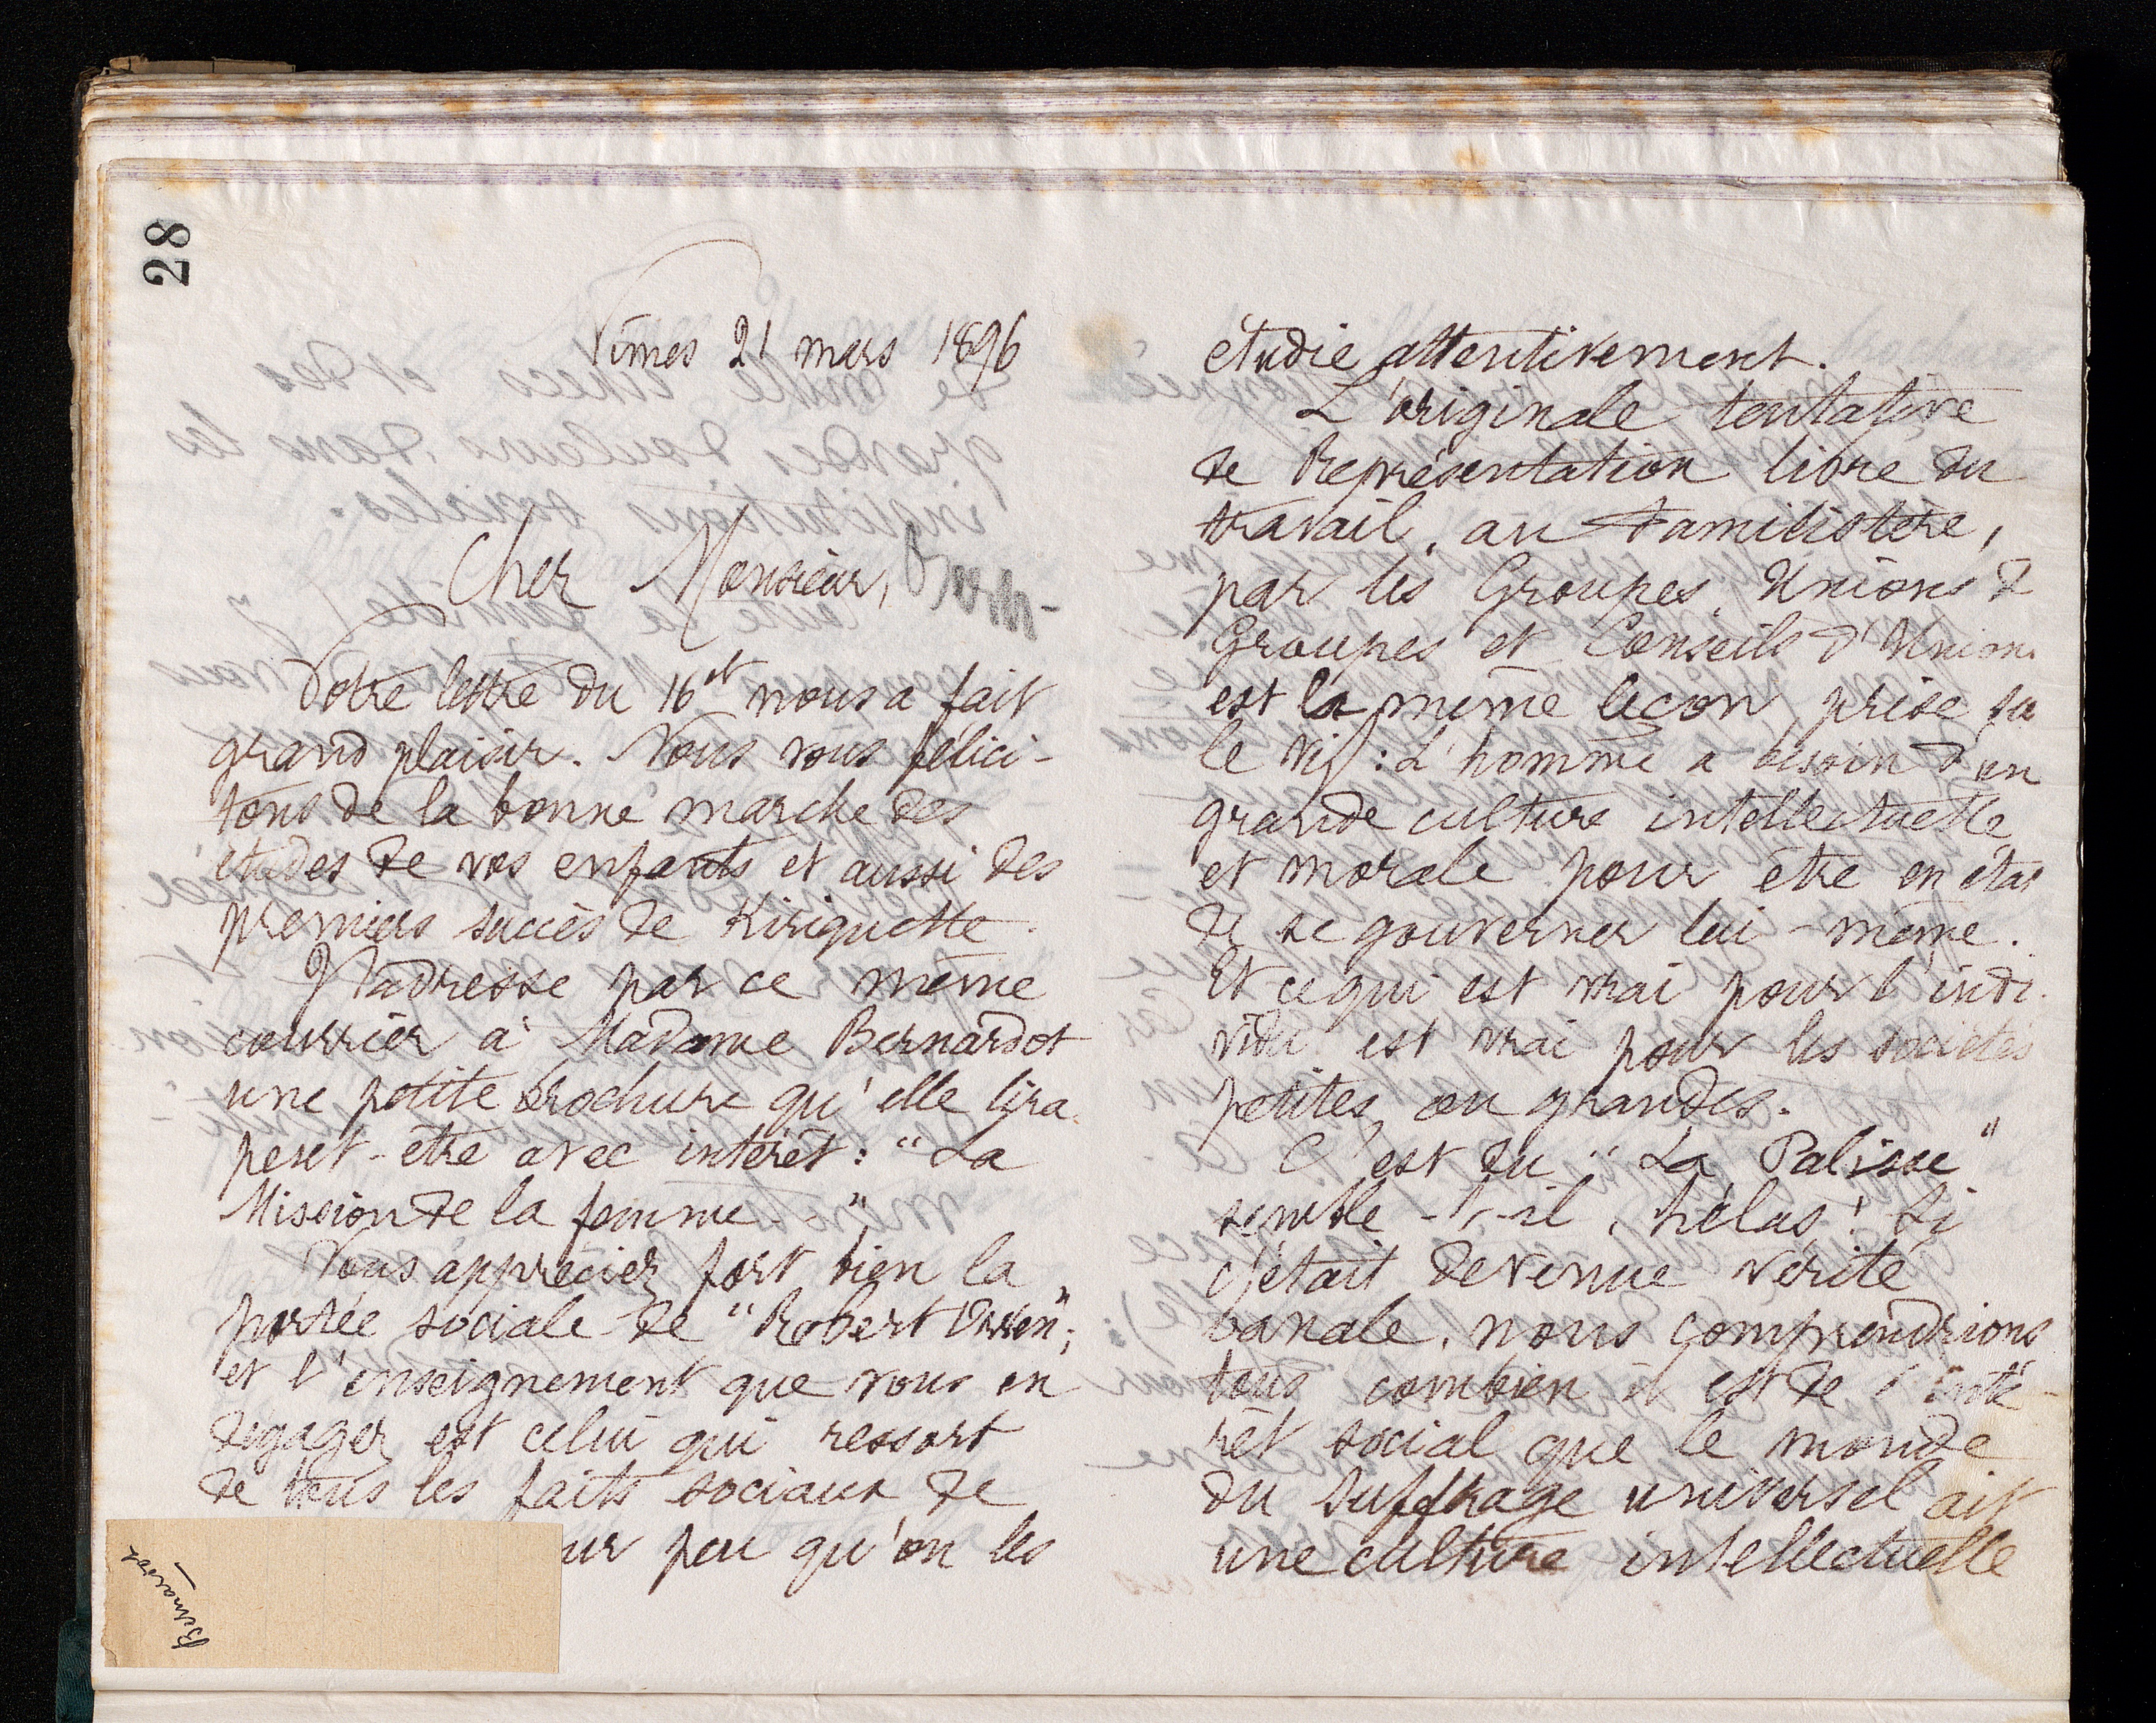 28
Nîmes 21 mars 1896
Cher Monsieur,
Votre lettre du 16 et nous a fait
grand plaisir. Nous vous félici-
tons de la bonne marche des
études de vos enfants et aussi des
premiers succès de Kiriquette.
J'adresse par ce même
courrier à Madame Bernardot
une petite brochure qu'elle lira
peut-être avec intérêt : "La
Mission de la femme".
Vous appréciez fort bien la
portée sociale de "Robert Owen";
et l'enseignement que vous en
dégagez est celui qui ressort
de tous les faits sociaux de
ur peu qu'on les
Bernardot
étudie attentivement.
L'originale tentative
de Représentation libre du
travail, au Familistère,
par les Groupes, Unions d
Groupes et Conseils d'Unions
est la même leçon prise su
le vif : L'homme a besoin d'un
grande culture intellectuelle
et morale pour être en état
de se gouverner lui-même.
Et ce qui est vrai pour l'indi-
vidu est vrai pour les sociétés
petites ou grandes.
C'est du "La Palisse"
semble-t-il, hélas ! Si
c'était devenue vérité
banale, nous comprendrions
tous combien il est de l'inté-
rêt social que le monde
du suffrage universel ait
une culture intellectuelle